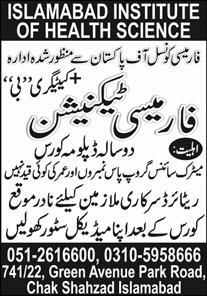 ISLAMABAD INSTITUTE
OF HEALTH SCIENCE
فارمیسی کونسل آف پاکستان سے منظور شدہ ادارہ
+ کیٹیگری "بی"
فارمیسی ٹیکنیشن
اہلیت: دو سالہ ڈپلومہ کورس
میٹرک سائنس گروپ پاس نمبروں اور عمر کی کوئی قید نہیں
ریٹائرڈ سرکاری ملازمین کیلئے نادر موقع
کورس کے بعد اپنا میڈیکل سٹور کھولیں
051-2616600, 0310-5958666
741/22, Green Avenue Park Road,
Chak Shahzad Islamabad